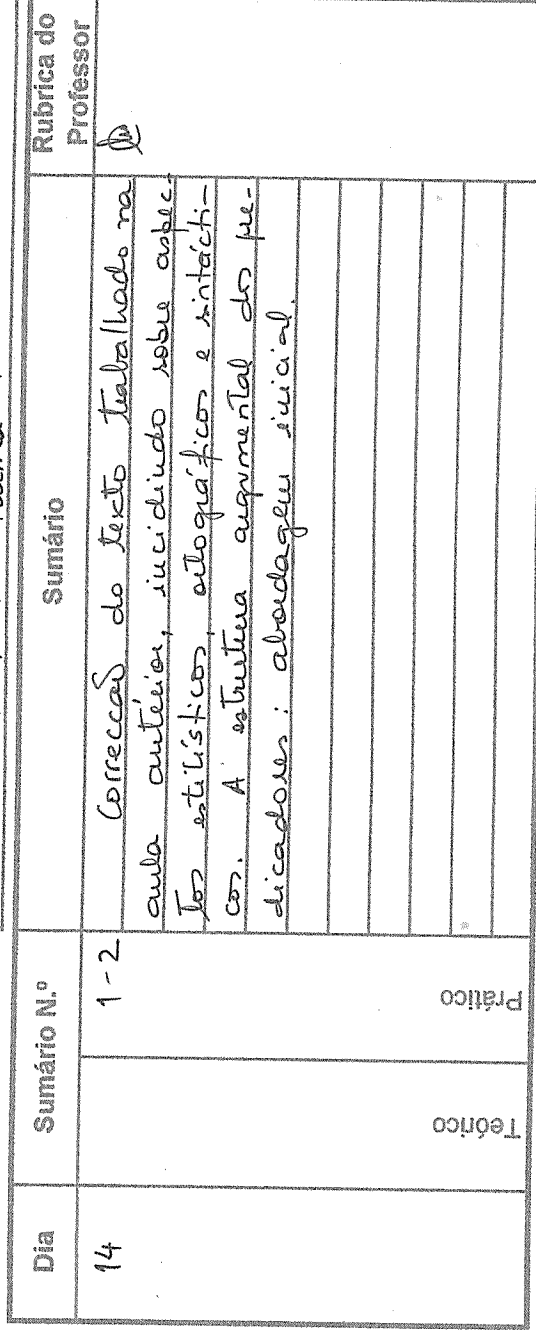 Dia
Sumário N.º
Sumário
Rubrica do
Professor
14
1-2
Correcção do texto trabalhado na
aula anterior, incidindo sobre aspec-
tos estilísticos, ortográficos e sintácti-
cos. A estrutura argumental dos pre-
dicadores: abordagem inicial.
Teórico
Prático